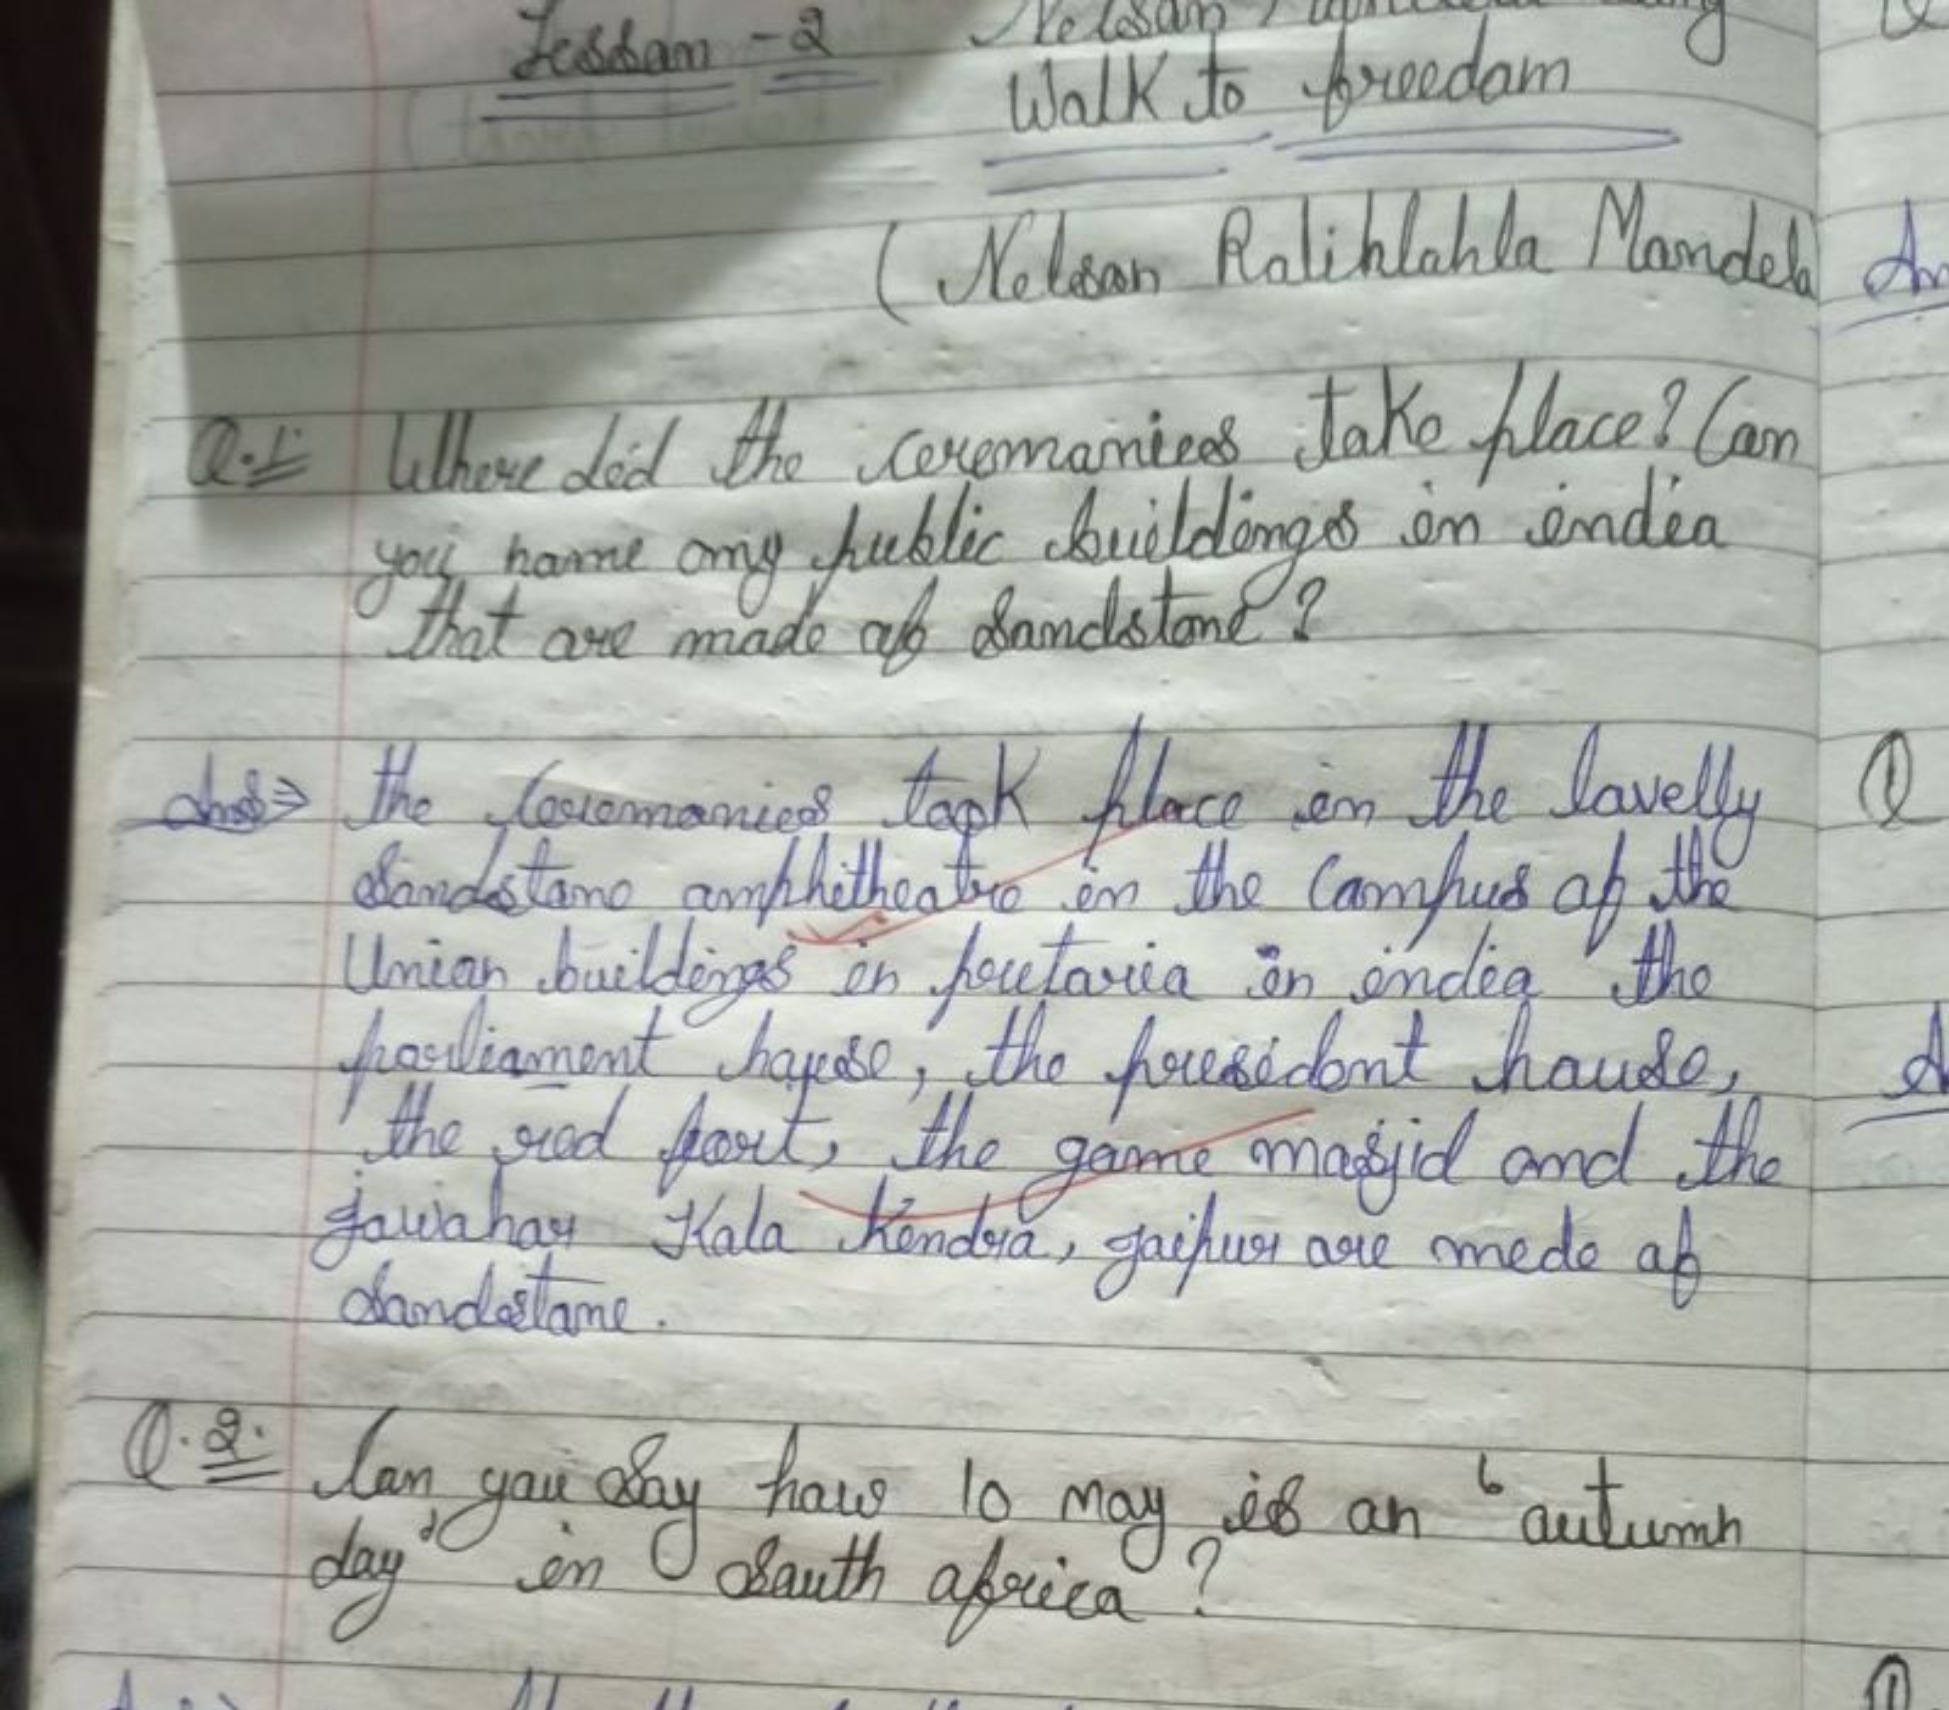 Lesson - 2 Nelson
Walk to freedom
(Nelson Ralihlahla Mandela
Q.1 Where did the ceremonies take place? Can
you name any public buildings in india
that are made of sandstone?
Ans⇒ the Ceremonies took place in the lovelly
sandstone amphitheatre in the Campus of the
Union buildings in pretoria in india the
parliament house, the president house,
the red fort, the game masjid and the
jawahar Kala kendra, jaipur are mede of
sandstone.
Q.2. Can you say how 10 may is an 'autumn
day' in South africa?